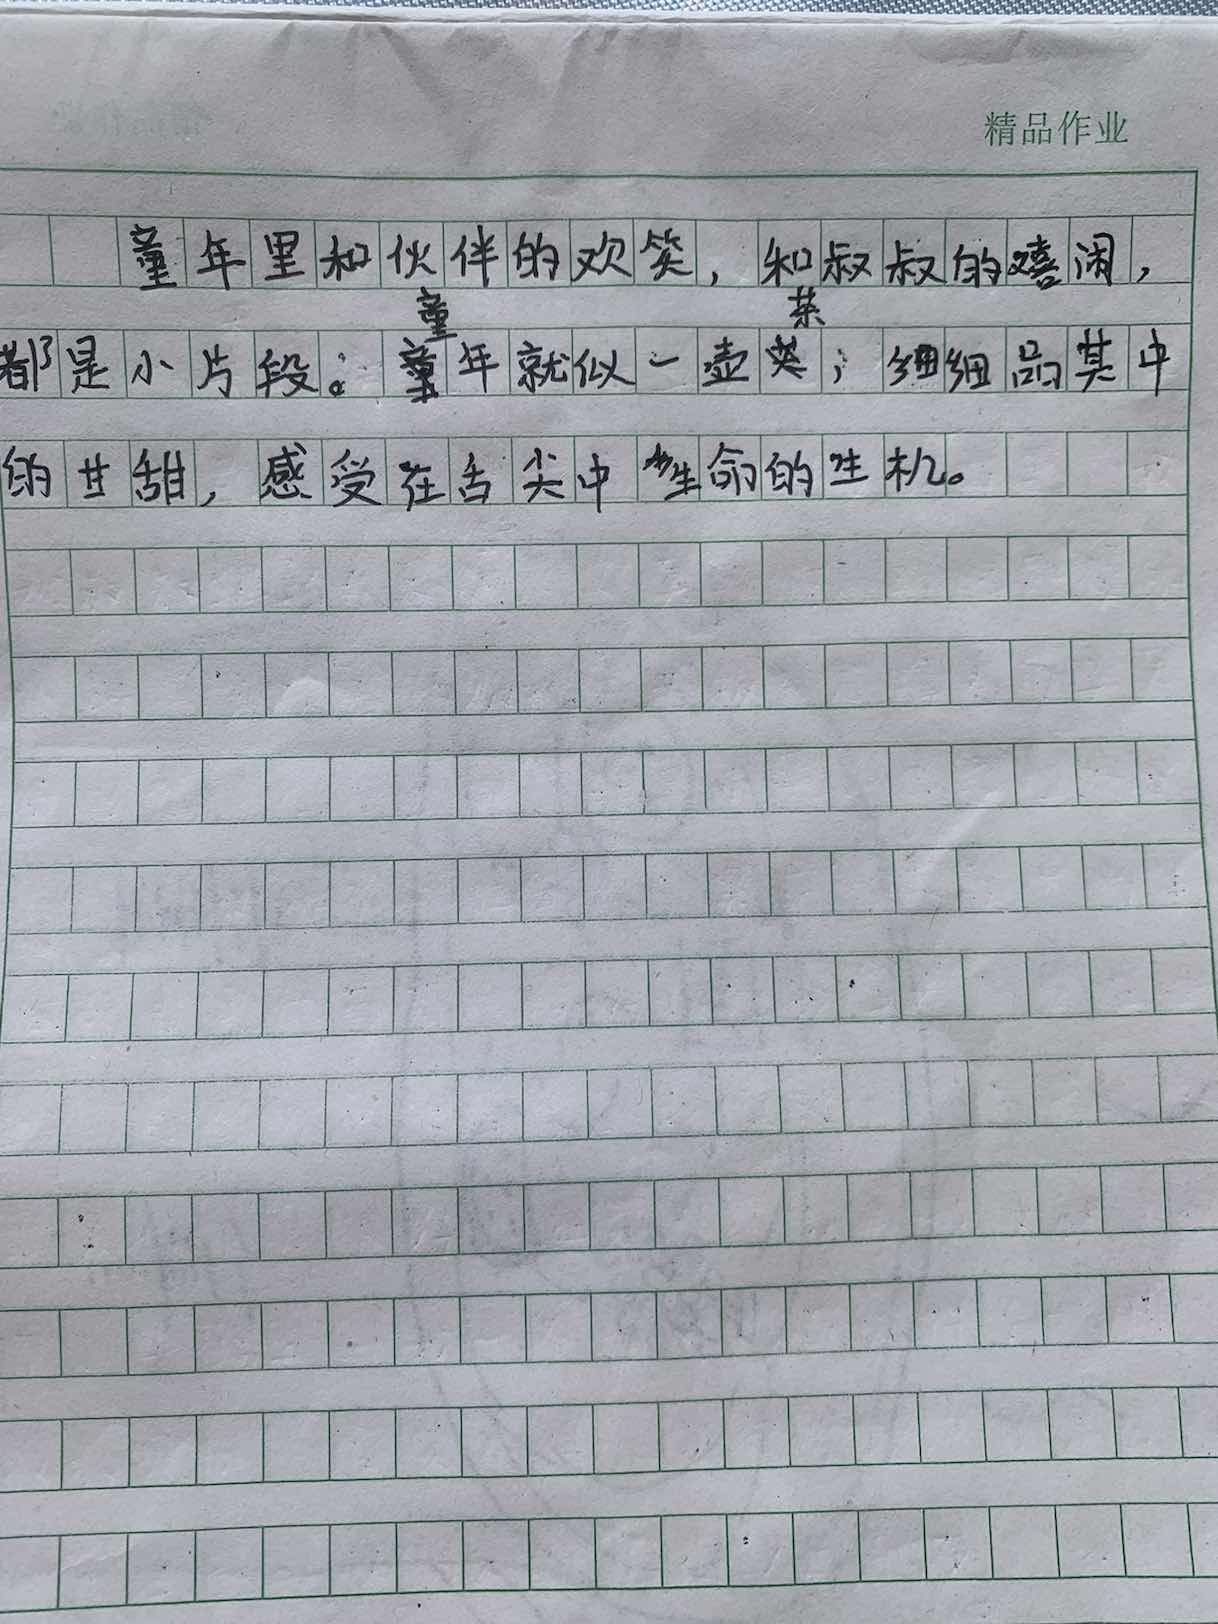 精品作业
童年里和伙伴的欢笑，和叔叔的嘻闹，
都是小片段。童年就似一壶茶；细细品其中
的甘甜，感受在舌尖中生命的生机。